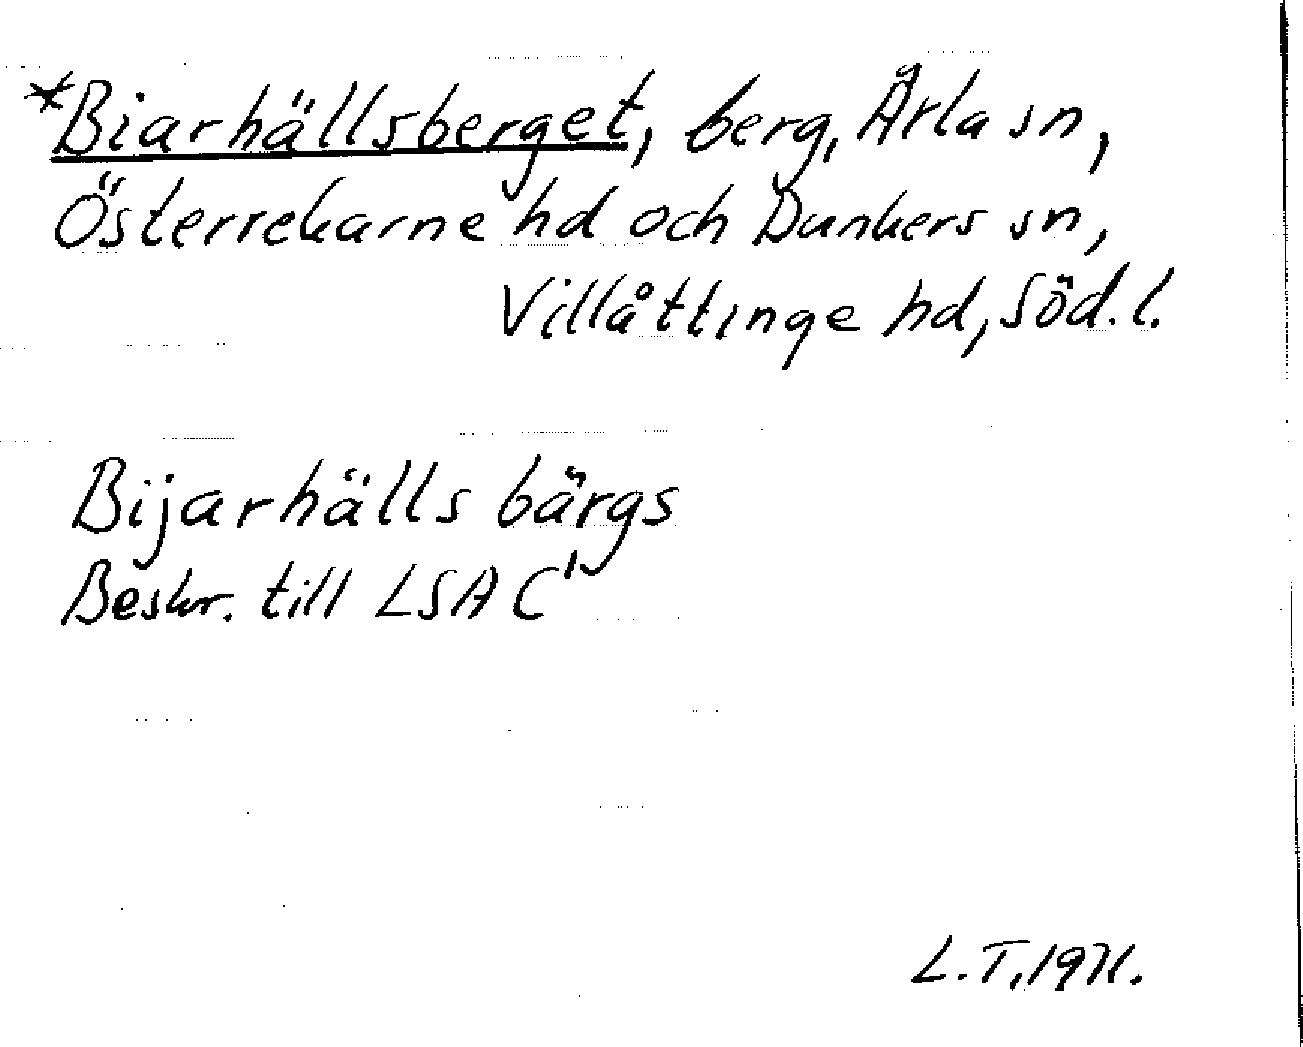 *Biarhällsberget, berg, Årla sn,
Österrekarne hd och Dunkers sn,
Villåttinge hd, Söd. l.
Bijarhälls bärgs
Beskr. till LSA C¹
L. T. 1971.